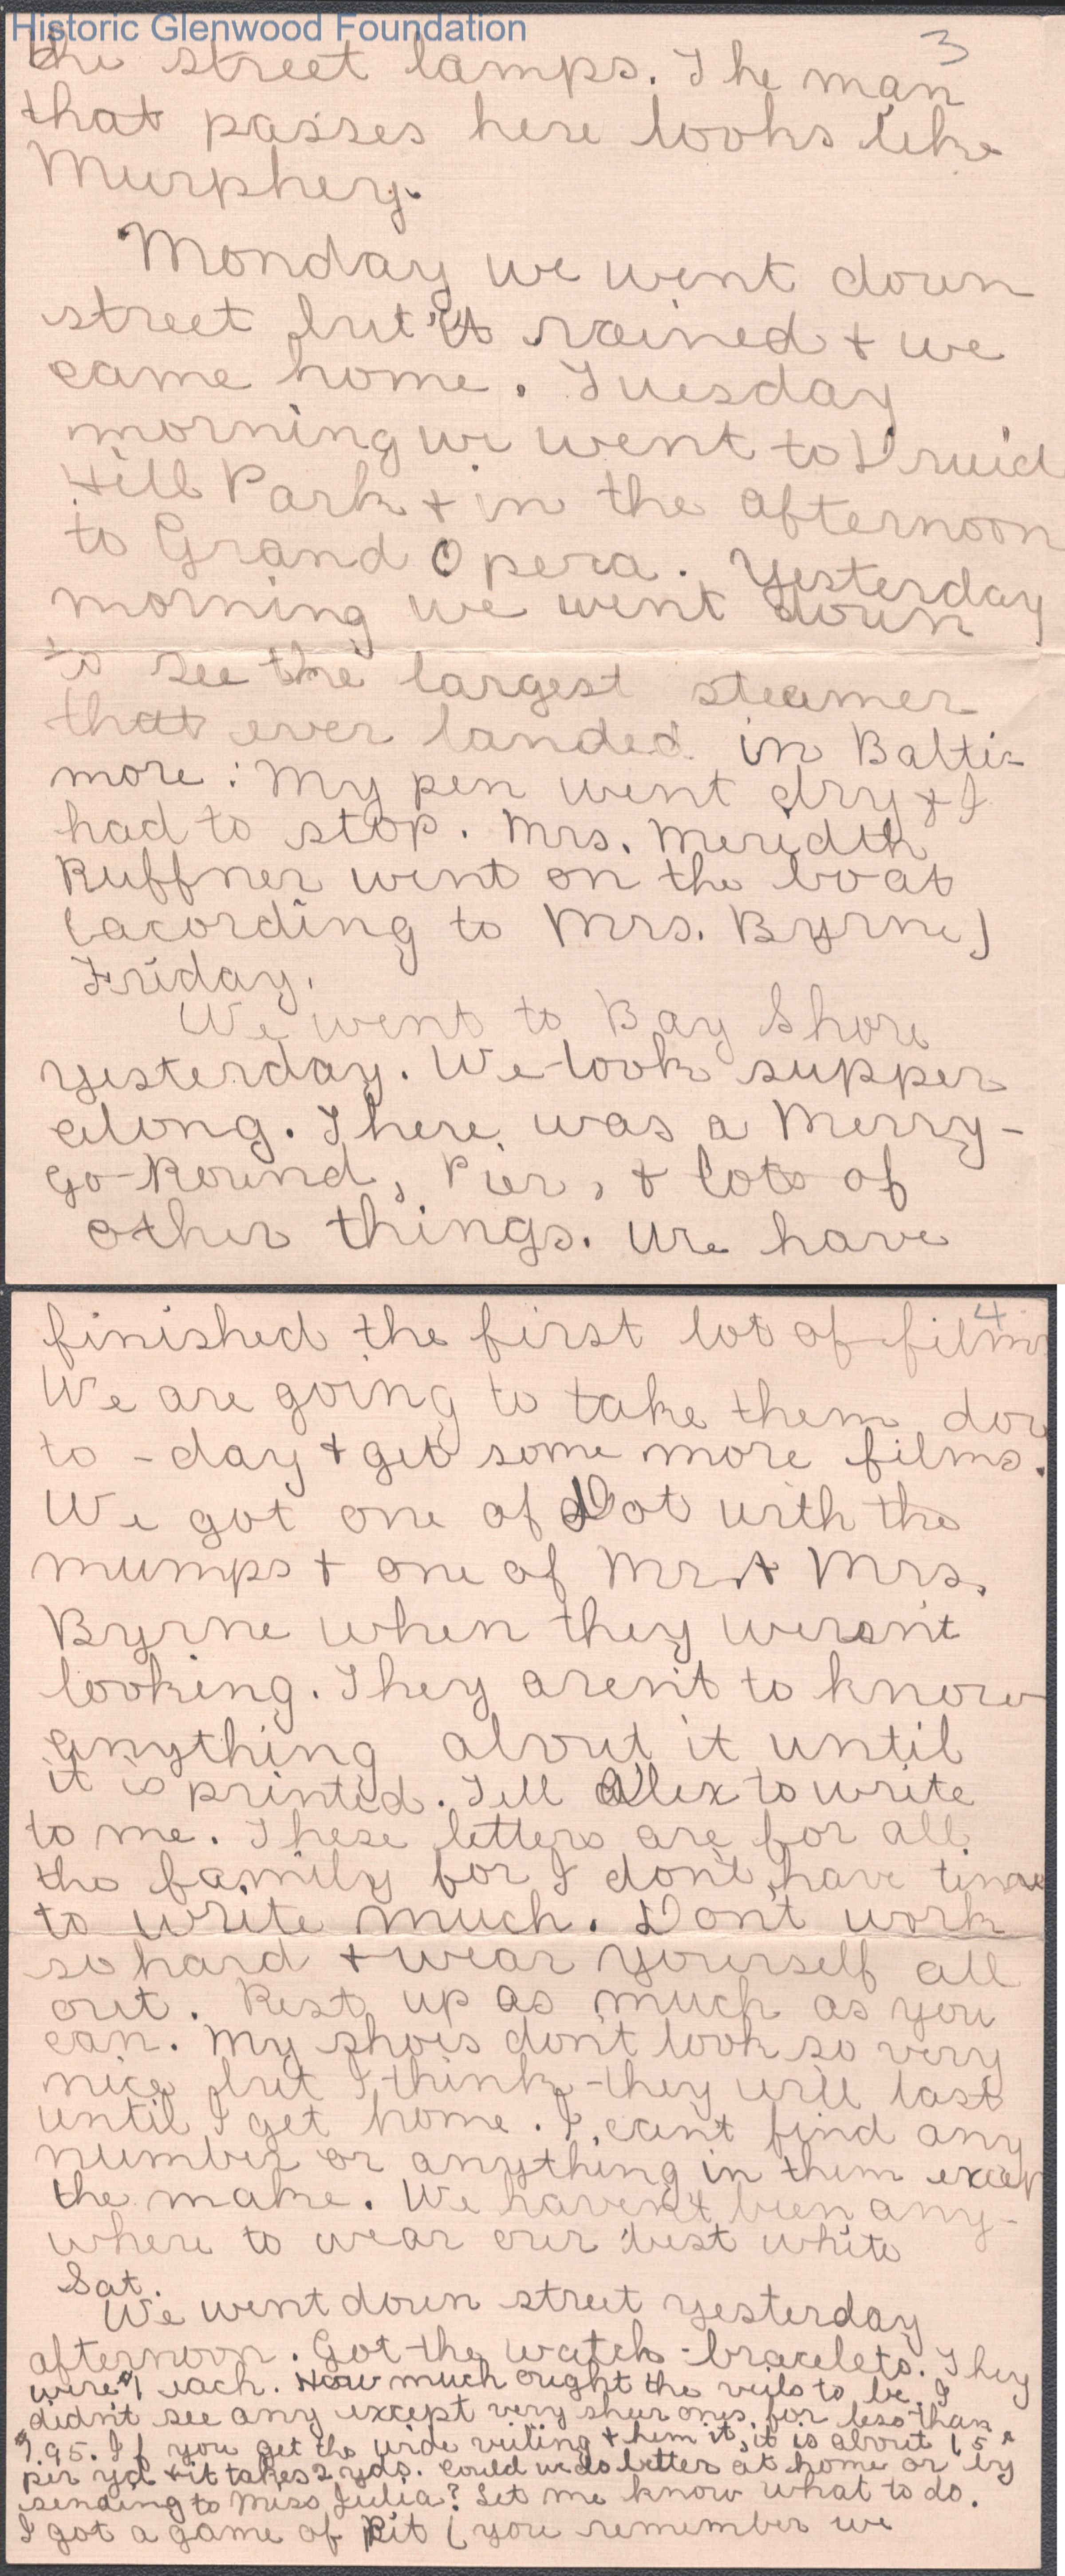 Historic Glenwood Foundation
3
the street lamps. The man
that passes here looks like
Murphey.
Monday we went down
street but it rained + we
came home. Tuesday
morning we went to Druid
Hill Park + in the afternoon
to Grand Opera. Yesterday
morning we went down
to see the largest steamer
that ever landed in Balti-
more: My pen went dry & I
had to stop. Mrs. Meredith
Ruffner went on the boat
(acording to Mrs. Byrne)
Friday.
We went to Bay Shore
yesterday. We took supper
along. There was a Merry-
Go-Round, Pier, & lots of
other things. We have
4
finished the first lot of films
We are going to take them dow
to-day + get some more films.
We got one of Dot with the
mumps + one of Mr. & Mrs.
Byrne when they weren't
looking. They aren't to know
anything about it until
it is printed. Tell Alex to write
to me. These letters are for all
the family for I don't have time
to write much. Don't work
so hard + wear yourself all
out. Rest up as much as you
can. My shoes don't look so very
nice but I think they will last
until I get home. I can't find any
number or anything in them excep
the make. We haven't been any-
where to wear our best white
Sat.
We went down street yesterday
afternoon. Got the watch-bracelets. They
were $1 each. How much ought the veils to be. I
didn't see any except very sheer ones for less than
$1.95. If you get the wide veiling & hem it, it is about 15¢
per yd + it takes 2 yds. Could we do better at home or by
sending to Miss Julia? Let me know what to do.
I got a game of Pit (you remember we